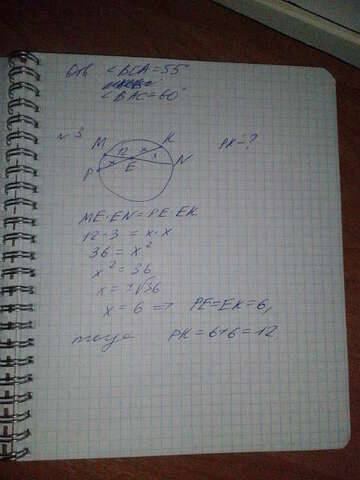 Отв ∠BCA = 55°
∠BAC = 60°
№3
M K
12 x
PK = ?
x E 3 N
P
ME·EN = PE·EK
12·3 = x·x
36 = x²
x² = 36
x = √36
x = 6 ⇒ PE = EK = 6,
тогда PK = 6+6 = 12